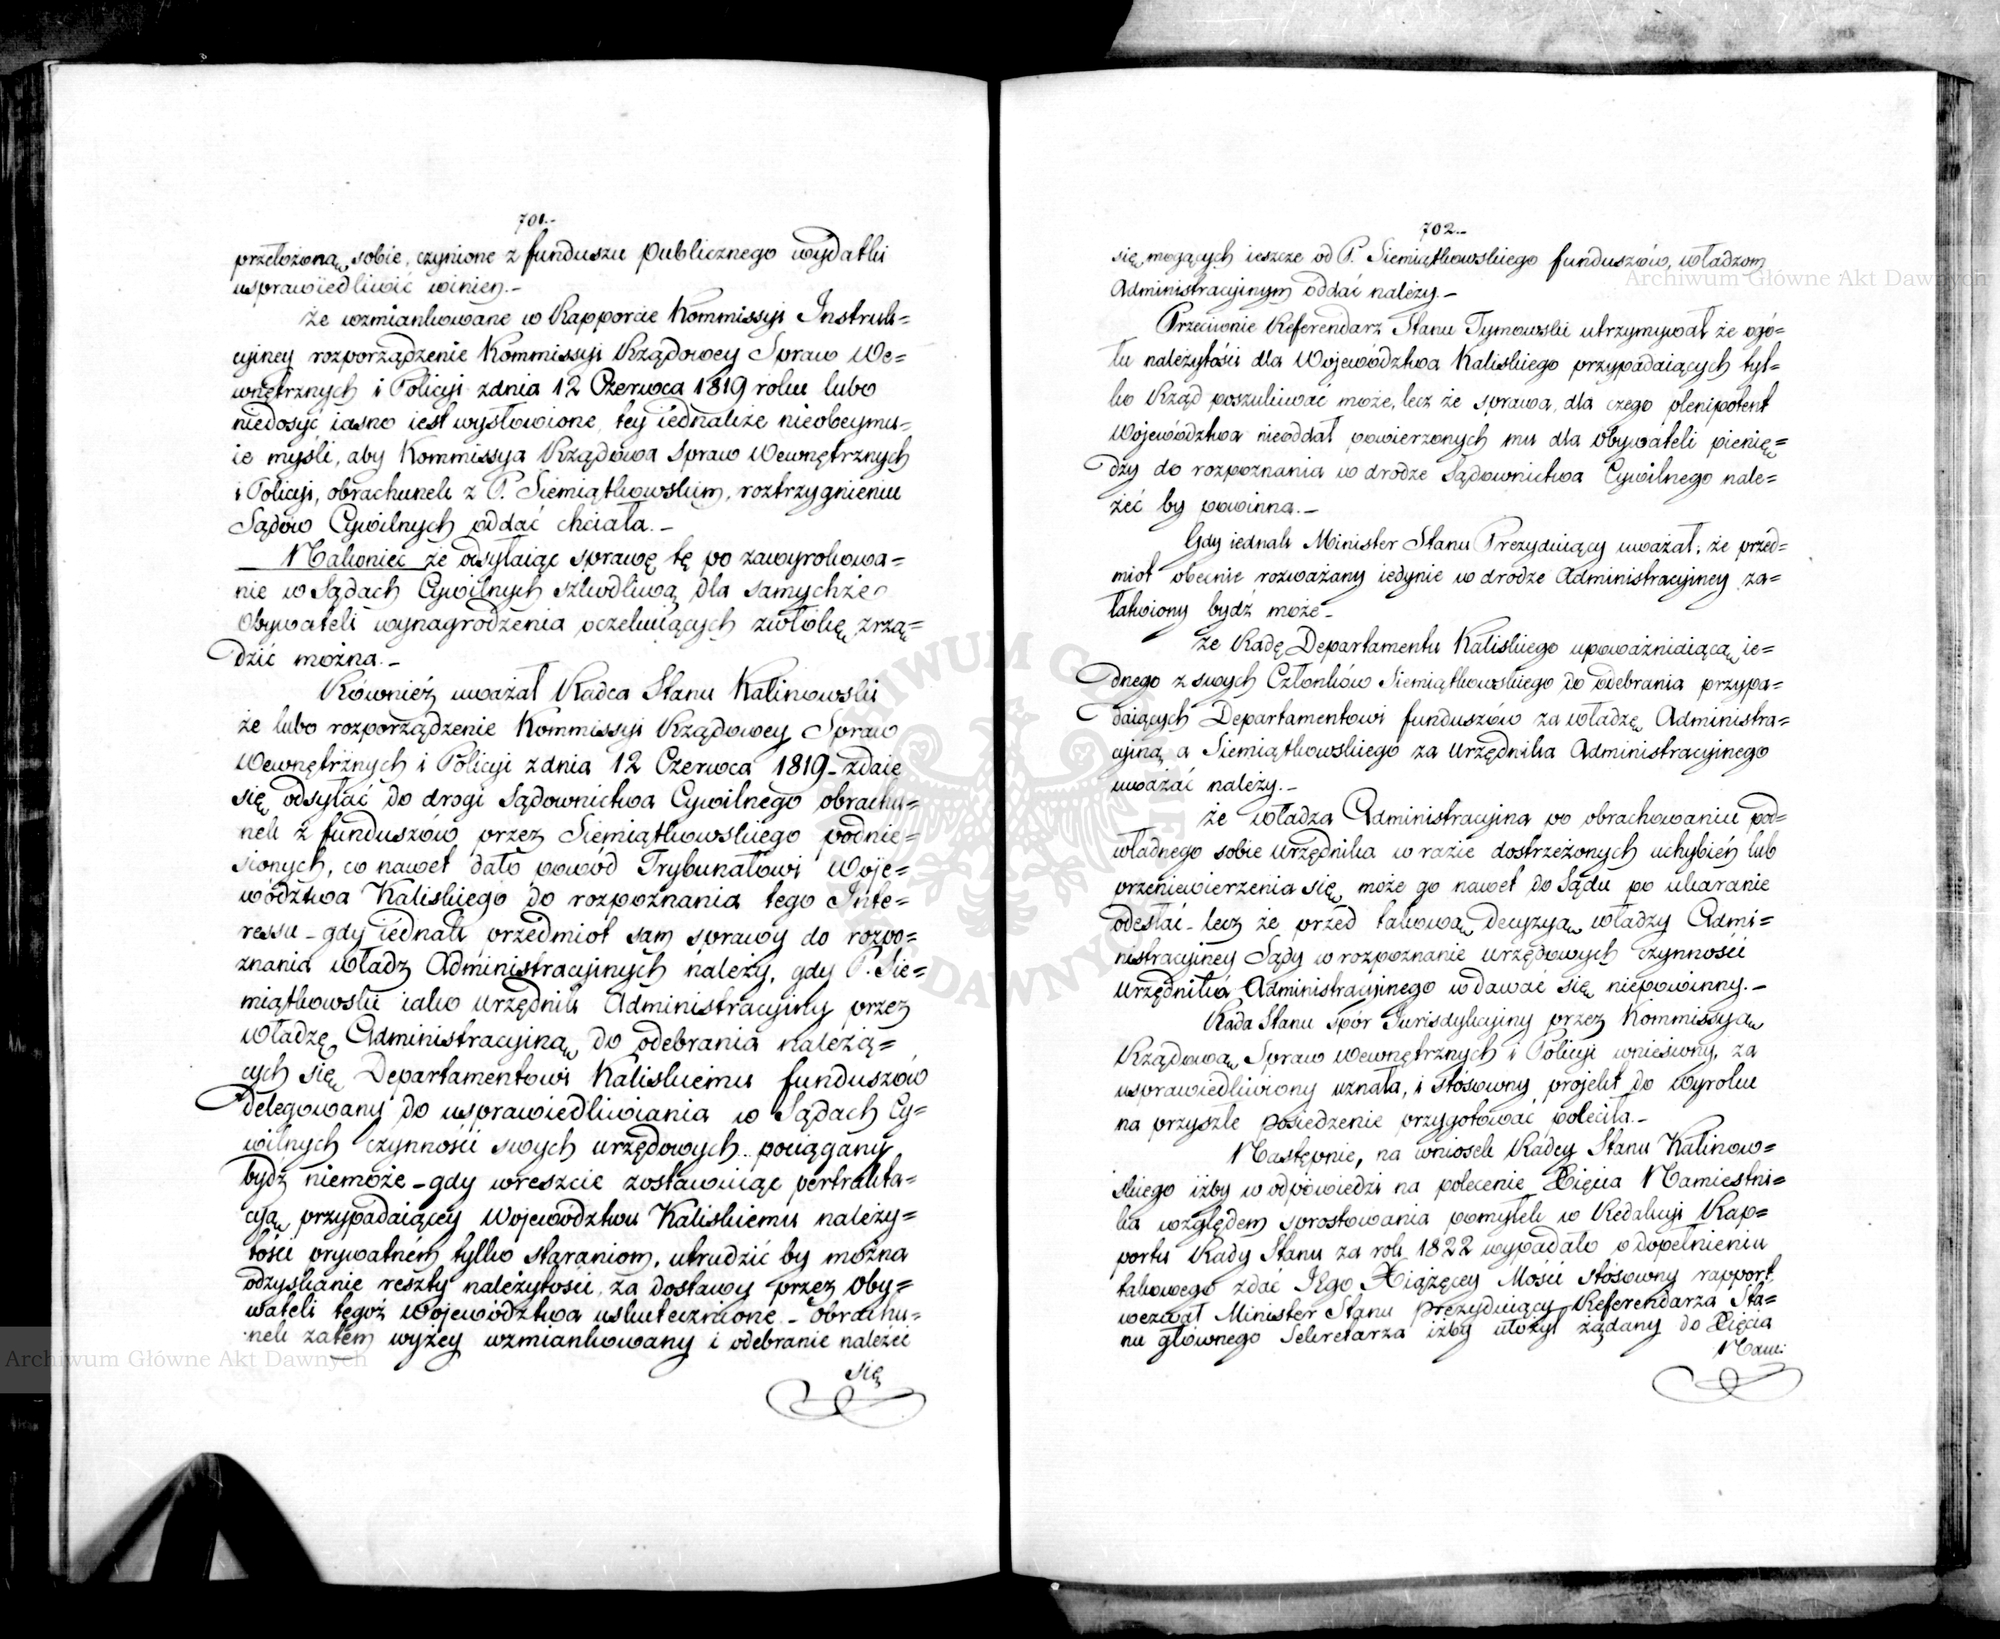 701.-
przełożoną sobie, czynione z funduszu publicznego wydatki
usprawiedliwić winien.-
że wzmiankowane w Rapporcie Kommissyi Instruk=
cyiney rozporządzenie Kommissyi Rządowey Spraw We=
wnętrznych i Policyi z dnia 12 Czerwca 1819 roku lubo
niedosyć iasno iest wysłowione, tey iednakże nieobeymu=
ie myśli, aby Kommissya Rządowa Spraw Wewnętrznych
i Policyi, obrachunek z P. Siemiątkowskim, roztrzygnieniu
Sądów Cywilnych oddać chciała.-
Nakoniec że odsyłaiąc sprawę tę po zawyrokowa=
nie w Sądach Cywilnych szkodliwą dla samychże
Obywateli wynagrodzenia oczekuiących zwłokę zrzą=
dzić można.-
Również uważał Radca Stanu Kalinowski
że lubo rozporządzenie Kommissyi Rządowey Spraw
Wewnętrznych i Policyi z dnia 12 Czerwca 1819 - zdaie
się odsyłać do drogi Sądownictwa Cywilnego obrachu=
nek z funduszów przez Siemiątkowskiego podnie=
sionych, co nawet dało powód Trybunałowi Woje=
wództwa Kaliskiego do rozpoznania tego Inte=
ressu - gdy iednak przedmiot sam sprawy do rozpo=
znania Władz Administracyinych należy, gdy P. Sie=
miątkowski iako Urzędnik Administracyiny przez
Władzę Administracyiną do odebrania należą=
cych się Departamentowi Kaliskiemu funduszów
delegowany do usprawiedliwiania w Sądach Cy=
wilnych czynności swych urzędowych pociągany
bydź niemoże - gdy wreszcie zostawuiąc pertrakta=
cyą przypadaiącey Województwu Kaliskiemu należy=
tości prywatném tylko staraniom, utrudzić by można
odzyskanie reszty należytości, za dostawy przez Oby=
wateli tegoż Województwa uskutecznione - obrachu=
nek zatem wyżey wzmiankowany i odebranie należeć
się
702.-
się mogących ieszcze od P. Siemiątkowskiego funduszów, władzom
Administracyinym oddać należy.-
Przeciwnie Referendarz Stanu Tymowski utrzymywał że ogó=
łu należytości dla Województwa Kaliskiego przypadaiących tyl=
ko Rząd poszukiwać może, lecz że sprawa, dla czego plenipotent
Województwa nieoddał powierzonych mu dla obywateli pienię=
dzy do rozpoznania w drodze Sądownictwa Cywilnego nale=
żeć by powinna.-
Gdy iednak Minister Stanu Prezyduiący uważał, że przed=
miot obecnie rozważany iedynie w drodze Administracyiney za=
łatwiony bydź może -
że Radę Departamentu Kaliskiego upoważniaiącą ie=
dnego z swych Członków Siemiątkowskiego do odebrania przypa=
daiących Departamentowi funduszów za władzę Administra=
cyiną a Siemiątkowskiego za Urzędnika Administracyinego
uważać należy.-
że władza Administracyina po obrachowaniu pod=
władnego sobie Urzędnika w razie dostrzeżonych uchybień lub
przeniewierzenia się, może go nawet do Sądu po ukaranie
odesłać - lecz że przed takową decyzyą władzy Admi=
nistracyiney Sądy w rozpoznanie urzędowych czynności
Urzędnika Administracyinego wdawać się niepowinny.-
Rada Stanu spór Jurisdykcyiny przez Kommissyą
Rządową Spraw Wewnętrznych i Policyi wniesiony, za
usprawiedliwiony uznała, i stosowny projekt do wyroku
na przyszłe posiedzenie przygotować poleciła.-
Następnie, na wniosek Radcy Stanu Kalinow=
skiego iżby w odpowiedzi na polecenie Xięcia Namiestni=
ka względem sprostowania pomyłek w Redakcyi Rap=
portu Rady Stanu za rok 1822 wypadało o dopełnieniu
takowego zdać Jego Xiążęcey Mości stosowny rapport,
wezwał Minister Stanu Prezyduiący Referendarza Sta=
nu głównego Sekretarza iżby ułożył żądany do Xięcia
Nami:
Archiwum Główne Akt Dawnych
Archiwum Główne Akt Dawnych
ARCHIWUM GŁÓWNE AKT DAWNYCH